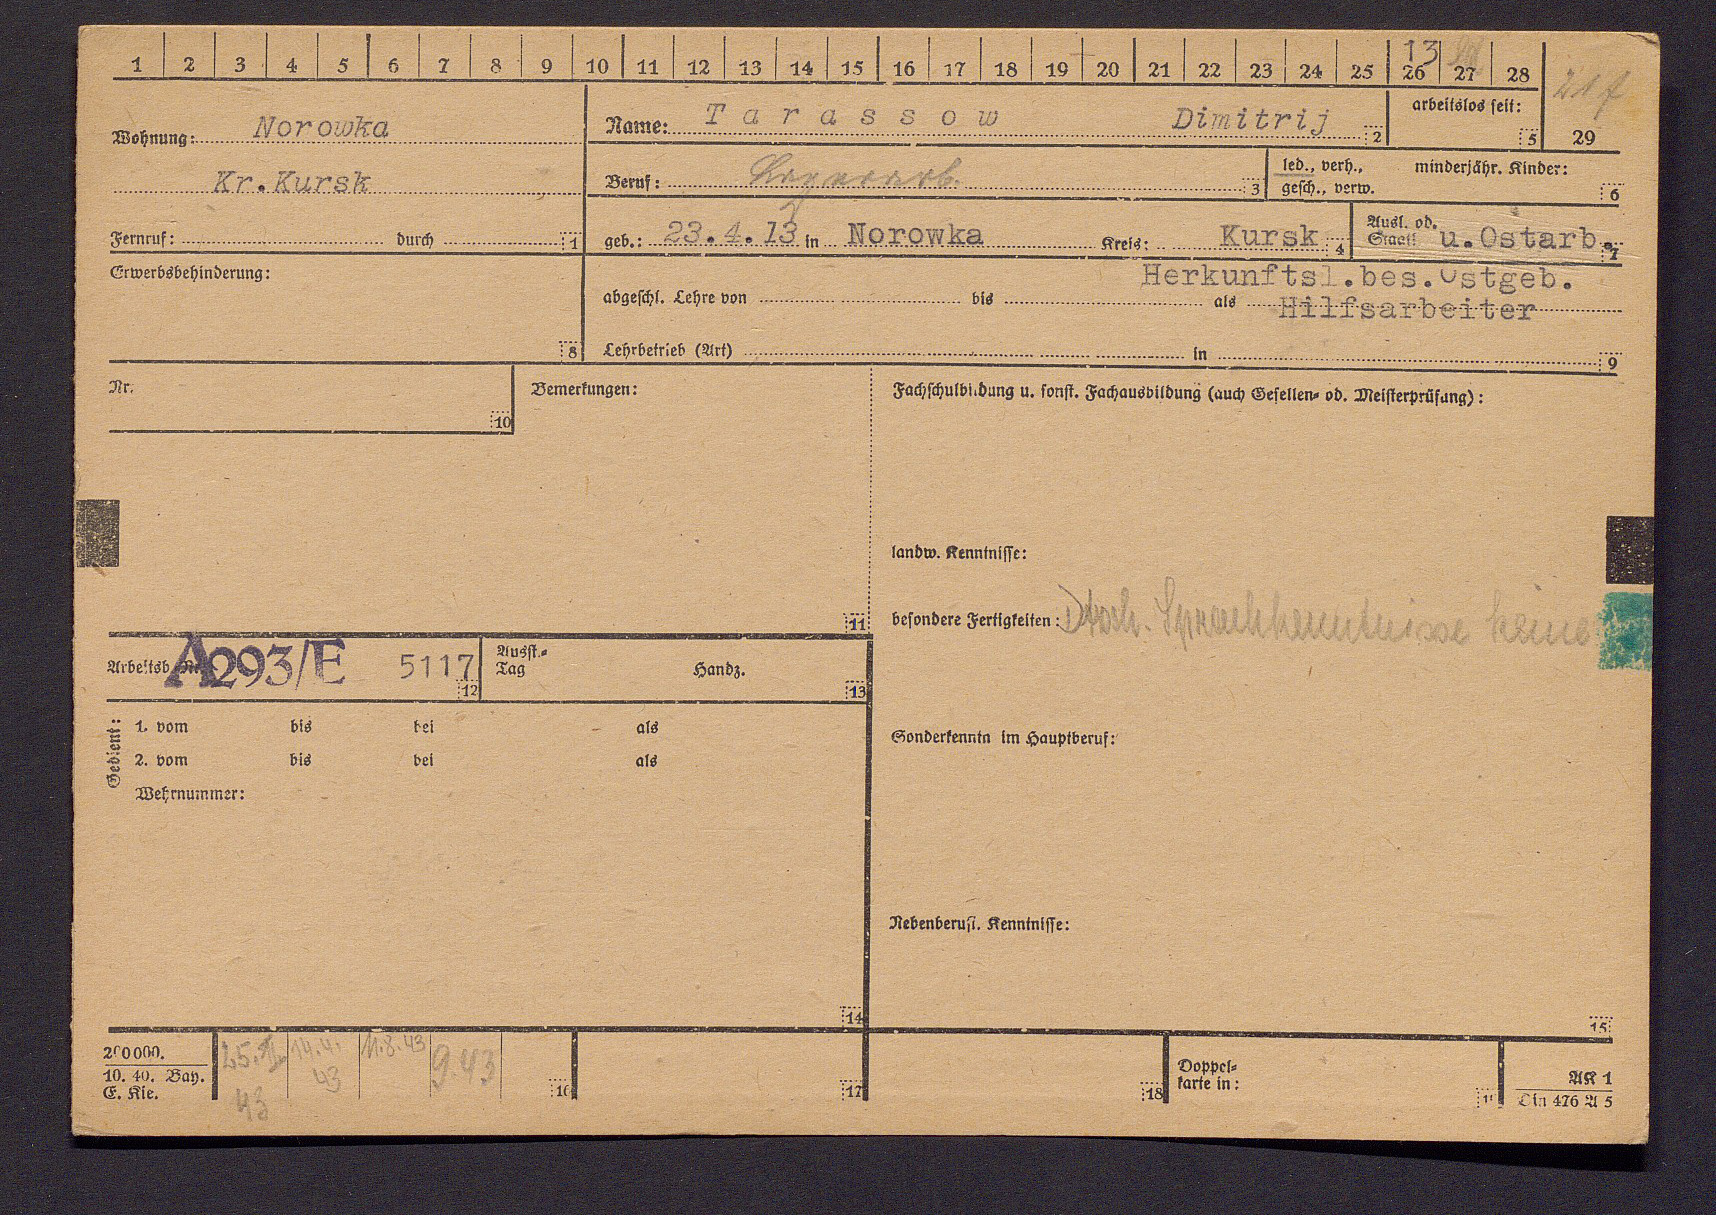 1 2 3 4 5 6 7 8 9 10 11 12 13 14 15 16 17 18 19 20 21 22 23 24 25 26 27 28
13
217
Wohnung: Norowka
Kr. Kursk
Fernruf: durch 1
Name: Tarassow Dimitrij 2
arbeitslos seit: 5
29
Beruf: Lagerarb. 3
led., verh., minderjähr. Kinder:
gesch., verw. 6
geb.: 23.4.13 in Norowka Kreis: Kursk 4
Ausl. od.
Staatl u.Ostarb. 7
Erwerbsbehinderung:
8
Herkunftsl.bes.Ostgeb.
abgeschl. Lehre von bis als Hilfsarbeiter
Lehrbetrieb (Art) in 9
Nr.
10
Bemerkungen:
11
Fachschulbildung u. sonst. Fachausbildung (auch Gesellen- od. Meisterprüfung):
landw. Kenntnisse:
besondere Fertigkeiten: Dtsch. Sprachkenntnisse keine
Arbeitsb. Nr. A293/E 5117 12
Ausst.-
Tag Handz. 13
Gedient:
1. vom bis bei als
2. vom bis bei als
Wehrnummer:
14
Sonderkenntn im Hauptberuf:
Nebenberufl. Kenntnisse:
15
200000.
10. 40. Bay.
E. Kie.
25.II. 43
14.4. 43
11.8.43
9.43
16
17
18
Doppel-
karte in:
AK 1
Din 476 A 5